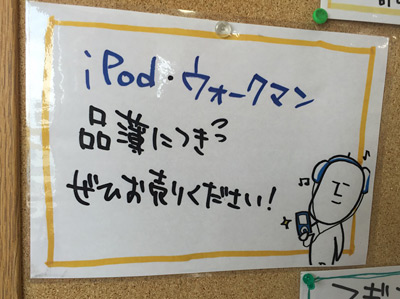 iPod・ウォークマン
品薄につきっ
ぜひお売りください!